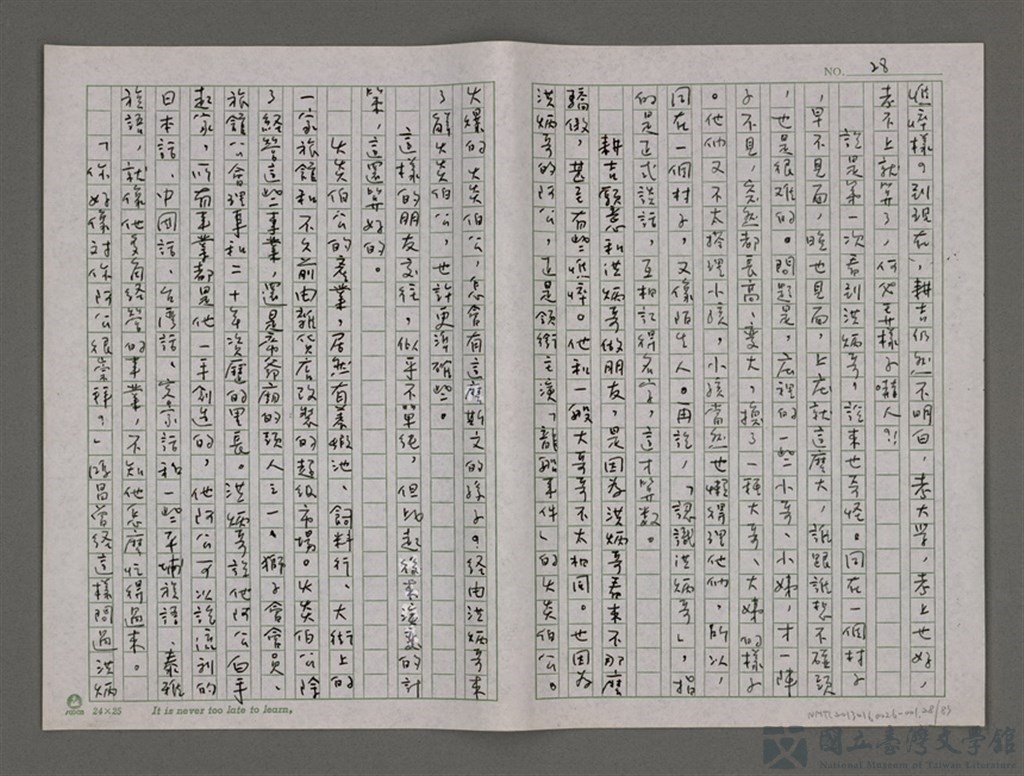 NO. 28
憔悴樣？到現在，耕吉仍然不明白，考大學，考上也好，
考不上就算了，何必弄樣子嚇人？！
說是第一次看到洪炳哥，說來也奇怪。同在一個村子
，早不見面，晚也見面，上庄就這麼大，誰跟誰想不碰頭
，也是很難的。問題是，庄裡的一些小哥、小姊，才一陣
子不見，突然都長高、變大，換了一種大哥、大姊的樣子
。他們又不太搭理小孩，小孩當然也懶得理他們，所以，
同在一個村子，又像陌生人。再說，「認識洪炳哥」，指
的是正式談話，互相記得名字，這才算數。
耕吉願意和洪炳哥做朋友，是因為洪炳哥看來不那麼
驕傲，甚至有些憔悴。他和一般大哥哥不太相同。也因為
洪炳哥的阿公，正是領銜主演「龍船事件」的火炎伯公。
火爆的火炎伯公，怎會有這麼斯文的孫子？經由洪炳哥來
了解火炎伯公，也許更準確些。
這樣的朋友交往，似乎不單純，但比起後來演變的計
策，這還算好的。
火炎伯公的產業，居然有養鰻池、飼料行、大街上的
一家旅館和不久前由雜貨店改裝的超級市場。火炎伯公除
了經營這些事業，還是帝爺廟的頭人之一。獅子會會員、
旅館公會理事和二十年資歷的里長。洪炳哥說他阿公白手
起家，所有事業都是他一手創造的，他阿公可以說流利的
日本話、中國話、台灣話、客家話和一些平埔族語、泰雅
族語，就像他多角經營的事業，不知他怎麼忙得過來。
「你好像對你阿公很崇拜？」鴻昌曾經這樣問過洪炳
24×25
It is never too late to learn.
國立臺灣文學館
National Museum of Taiwan Literature